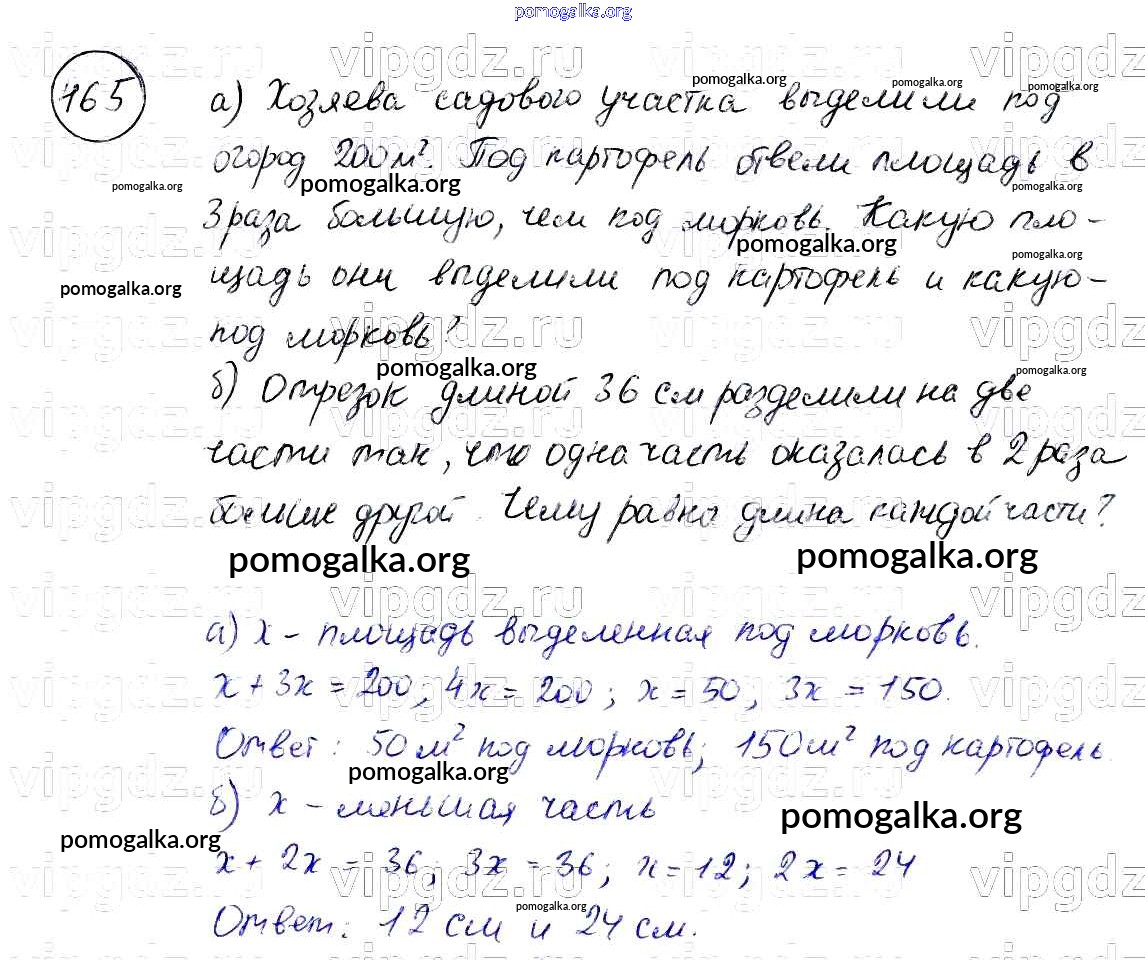 pomogalka.org
165
а) Хозяева садового участка выделили под
огород 200 м². Под картофель отвели площадь в
3 раза большую, чем под морковь. Какую пло-
щадь они выделили под картофель и какую-
под морковь?
б) Отрезок длиной 36 см разделили на две
части так, что одна часть оказалась в 2 раза
больше другой. Чему равна длина каждой части?
а) x – площадь выделенная под морковь.
x + 3x = 200; 4x = 200; x = 50; 3x = 150.
Ответ: 50 м² под морковь; 150 м² под картофель.
б) x – меньшая часть
x + 2x = 36; 3x = 36; x = 12; 2x = 24
Ответ: 12 см и 24 см.
vipgdz.ru